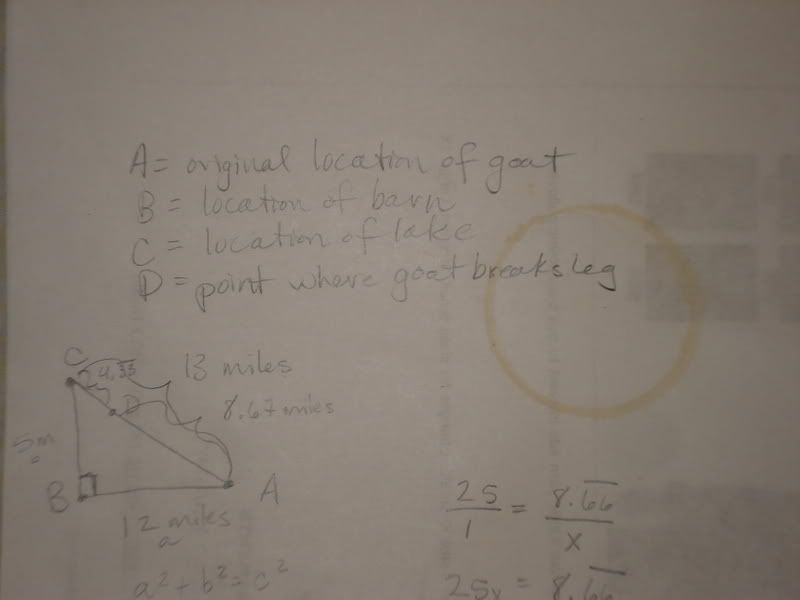 A = original location of goat
B = location of barn
C = location of lake
D = point where goat breaks leg
C
4.33
13 miles
D
8.67 miles
5m
B
A
12 miles
a
a² + b² = c²
25/1 = 8.6̅6̅/x
25x = 8.6̅6̅